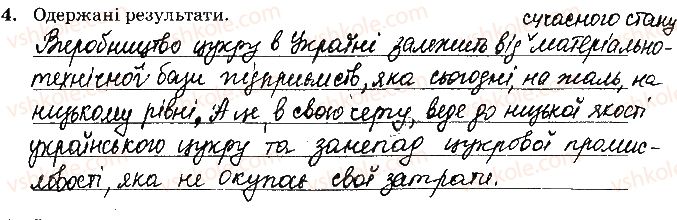 4. Одержані результати.
сучасного стану
Виробництво цукру в Україні залежить від матеріально-
технічної бази підприємств, яка сьогодні, на жаль, на
низькому рівні, А це, в свою чергу, веде до низької якості
українського цукру та занепад цукрової промис-
ловості, яка не окупає свої затрати.